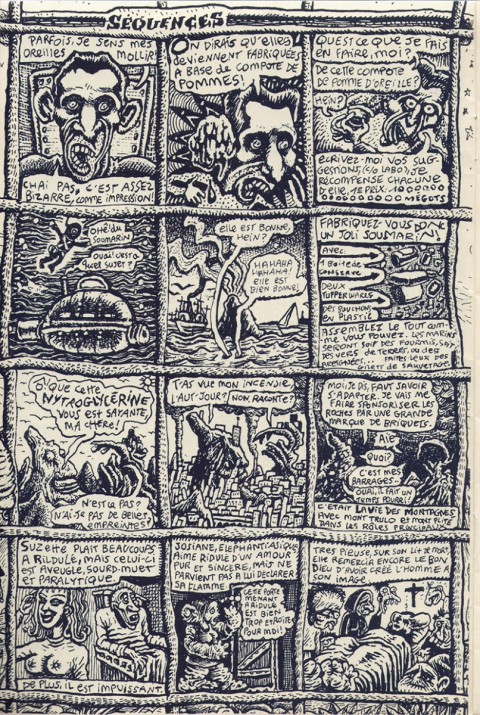 SÉQUENCES
PARFOIS, JE SENS MES
OREILLES MOLLIR!
CHAI PAS, C'EST ASSEZ
BIZARRE, COMME IMPRESSION!
ON DIRAIT QU'ELLES
DEVIENNENT FABRIQUÉES
À BASE DE COMPOTE DE
POMMES!
QU'EST CE QUE JE FAIS
EN FAIRE, MOI?
DE CETTE COMPOTE
DE POMME D'OREILLE?
HEIN?
ECRIVEZ-MOI VOS SUG-
GESTIONS, (S/O LABO). JE
RÉCOMPENSE CHACUNE
D'ELLE, 1e PRIX:
MÉGOTS
OHÉ! DU
SOUMARIN
OUAI! C'EST À
QUEL SUJET?
ELLE EST BONNE,
HEIN?
HAHAHA
HAHAHA!
ELLE EST
BIEN BONNE!
FABRIQUEZ-VOUS DONC
UN JOLI SOUSMARIN!
AVEC:
1 BOÎTE DE
CONSERVE
DEUX
TUPPERWARES
DES BOUCHONS
EN PLASTIC
ASSEMBLEZ LE TOUT COM-
ME VOUS POUVEZ. LES MARINS
SERONT SOIT DES FOURMIS, SOIT
DES VERS DE TERRE, OU DES
ARAIGNÉES... FAITES LEUR DES
GILETS DE SAUVETAGE
Ô! QUE CETTE
NYTROGLYCERINE
VOUS EST SAYANTE,
MA CHÈRE!
N'EST CE PAS?
N'AI JE PAS DE BELLES
EMPREINTES?
T'AS VU MON INCENDIE,
L'AUT'JOUR?
NON, RACONTE?
MOI JE DIS, FAUT SAVOIR
S'ADAPTER. JE VAIS ME
FAIRE SPONSORISER LES
ROCHES PAR UNE GRANDE
MARQUE DE BRIQUETS.
AIE
QUOI?
C'EST MES
BARRAGES-
OUAI, IL FAIT UN
TEMPS POURRI!
C'ÉTAIT LA VIE DES MONTAGNES
AVEC MONT TRULO ET MONT PLITE
DANS LES RÔLES PRINCIPAUX
SUZETTE PLAIT BEAUCOUP
À RILDULE, MAIS CELUI-CI
EST AVEUGLE, SOURD-MUET
ET PARALYTIQUE.
DE PLUS, IL EST IMPUISSANT.
JOSIANE, ELEPHANTIASIQUE,
AIME RIDULE D'UN AMOUR
PUR ET SINCÈRE, MAIS NE
PARVIENT PAS À LUI DÉCLARER
SA FLAMME
CETTE PORTE
MENANT
À RIDULE
EST BIEN
TROP ETROITE
POUR MOI!
TRES PIEUSE, SUR SON LIT DE MORT,
ELLE REMERCIA ENCORE LE BON
DIEU D'AVOIR CRÉÉ L'HOMME À
SON IMAGE.